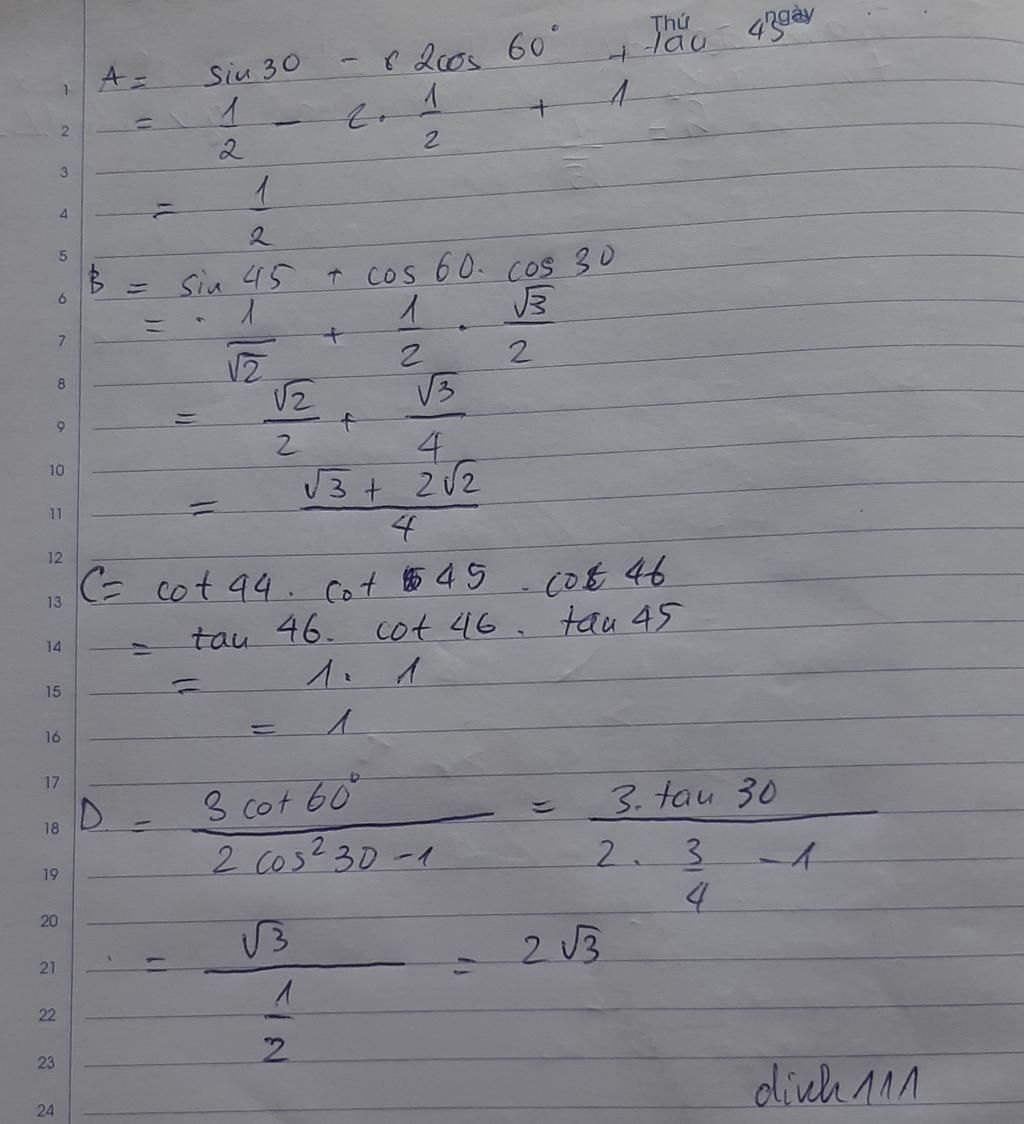 Thứ ngày
A = sin 30 - 2cos 60° + tau 45
1
= 1/2 - 2 . 1/2 + 1
2
3
= 1/2
4
5
B = sin 45 + cos 60 . cos 30
6
= 1/√2 + 1/2 . √3/2
7
8
= √2/2 + √3/4
9
10
= (√3 + 2√2)/4
11
12
C = cot 44 . cot 45 . cot 46
13
= tau 46 . cot 46 . tau 45
14
= 1 . 1
15
= 1
16
17
D = 3 cot 60°/(2 cos² 30 - 1) = 3 . tau 30/(2 . 3/4 - 1)
18
19
20
= √3/(1/2) = 2√3
21
22
23
dinh111
24